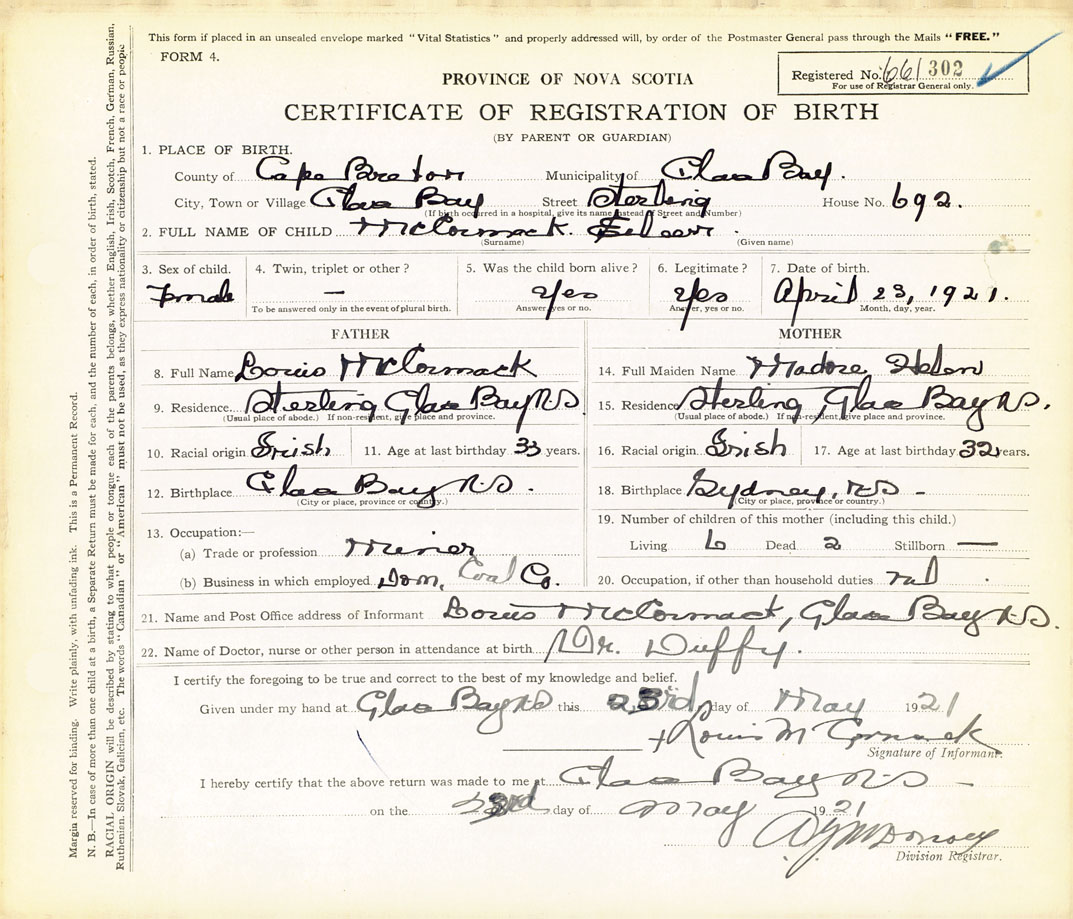 This form if placed in an unsealed envelope marked "Vital Statistics" and properly addressed will, by order of the Postmaster General pass through the Mails "FREE."
FORM 4.
Registered No. 661 302
For use of Registrar General only.
PROVINCE OF NOVA SCOTIA
CERTIFICATE OF REGISTRATION OF BIRTH
(BY PARENT OR GUARDIAN)
1. PLACE OF BIRTH.
County of Cape Breton Municipality of Glace Bay.
City, Town or Village Glace Bay Street Sterling House No. 692.
(If birth occurred in a hospital, give its name instead of Street and Number)
2. FULL NAME OF CHILD McCormack. Eileen.
(Surname) (Given name)
3. Sex of child. 4. Twin, triplet or other? 5. Was the child born alive? 6. Legitimate? 7. Date of birth.
Female — Yes Yes April 23, 1921.
To be answered only in the event of plural birth. Answer, yes or no. Answer, yes or no. Month, day, year.
FATHER
8. Full Name Louis McCormack
9. Residence Sterling Glace Bay N.S.
(Usual place of abode.) If non-resident, give place and province.
10. Racial origin Irish 11. Age at last birthday 33 years.
12. Birthplace Glace Bay N.S.
(City or place, province or country.)
13. Occupation:—
(a) Trade or profession Miner
(b) Business in which employed Dom. Coal Co.
MOTHER
14. Full Maiden Name Madore Helen
15. Residence Sterling, Glace Bay N.S.
(Usual place of abode.) If non-resident, give place and province.
16. Racial origin Irish 17. Age at last birthday 32 years.
18. Birthplace Sydney, N.S. —
(City or place, province or country.)
19. Number of children of this mother (including this child.)
Living 6 Dead 2 Stillborn —
20. Occupation, if other than household duties
21. Name and Post Office address of Informant Louis McCormack, Glace Bay N.S.
22. Name of Doctor, nurse or other person in attendance at birth Dr. Duffy.
I certify the foregoing to be true and correct to the best of my knowledge and belief.
Given under my hand at Glace Bay N.S. this 23rd day of May 1921
Louis McCormack
Signature of Informant.
I hereby certify that the above return was made to me at Glace Bay N.S. —
on the 23rd day of May 1921
Division Registrar.
Margin reserved for binding. Write plainly, with unfading ink. This is a Permanent Record.
N. B.—In case of more than one child at a birth, a Separate Return must be made for each, and the number of each, in order of birth, stated.
RACIAL ORIGIN will be described by stating to what people or tongue each of the parents belongs, whether English, Irish, Scotch, French, German, Russian,
Ruthenian, Slovak, Galician, etc. The words "Canadian" or "American" must not be used, as they express nationality or citizenship but not a race or people